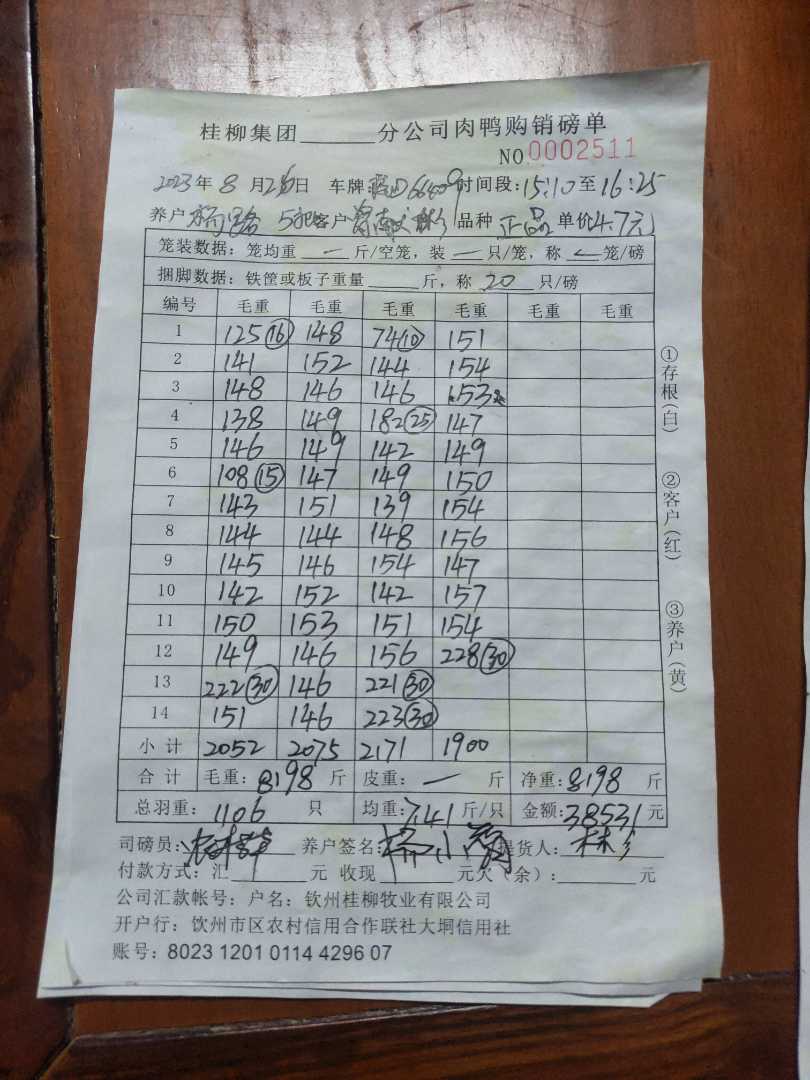 桂柳集团______分公司肉鸭购销磅单
NO 0002511
2023年 8月2 日 车牌 66409 时间段:15:10至16:25
养户 客户 品种 正品 单价4.7元
笼装数据: 笼均重 — 斤/空笼, 装 — 只/笼, 称 笼/磅
捆脚数据: 铁筐或板子重量______斤, 称 20 只/磅
编号 毛重 毛重 毛重 毛重 毛重 毛重
1 125(16) 148 74(10) 151
2 141 152 144 154
3 148 146 146 153
4 138 149 182(25) 147
5 146 149 142 149
6 108(15) 147 149 150
7 143 151 139 154
8 144 144 148 156
9 145 146 154 147
10 142 152 142 157
11 150 153 151 154
12 149 146 156 228(30)
13 222(30) 146 221(30)
14 151 146 223(30)
小计 2052 2075 2171 1900
合计 毛重: 8198 斤 皮重: — 斤 净重: 8198 斤
总羽重: 1106 只 均重: 7.41 斤/只 金额: 38531 元
司磅员: 养户签名: 提货人:
付款方式: 汇______元 收现______元 欠(余): ______元
公司汇款帐号: 户名: 钦州桂柳牧业有限公司
开户行: 钦州市区农村信用合作联社大垌信用社
账号: 8023 1201 0114 4296 07
①存根(白)
②客户(红)
③养户(黄)